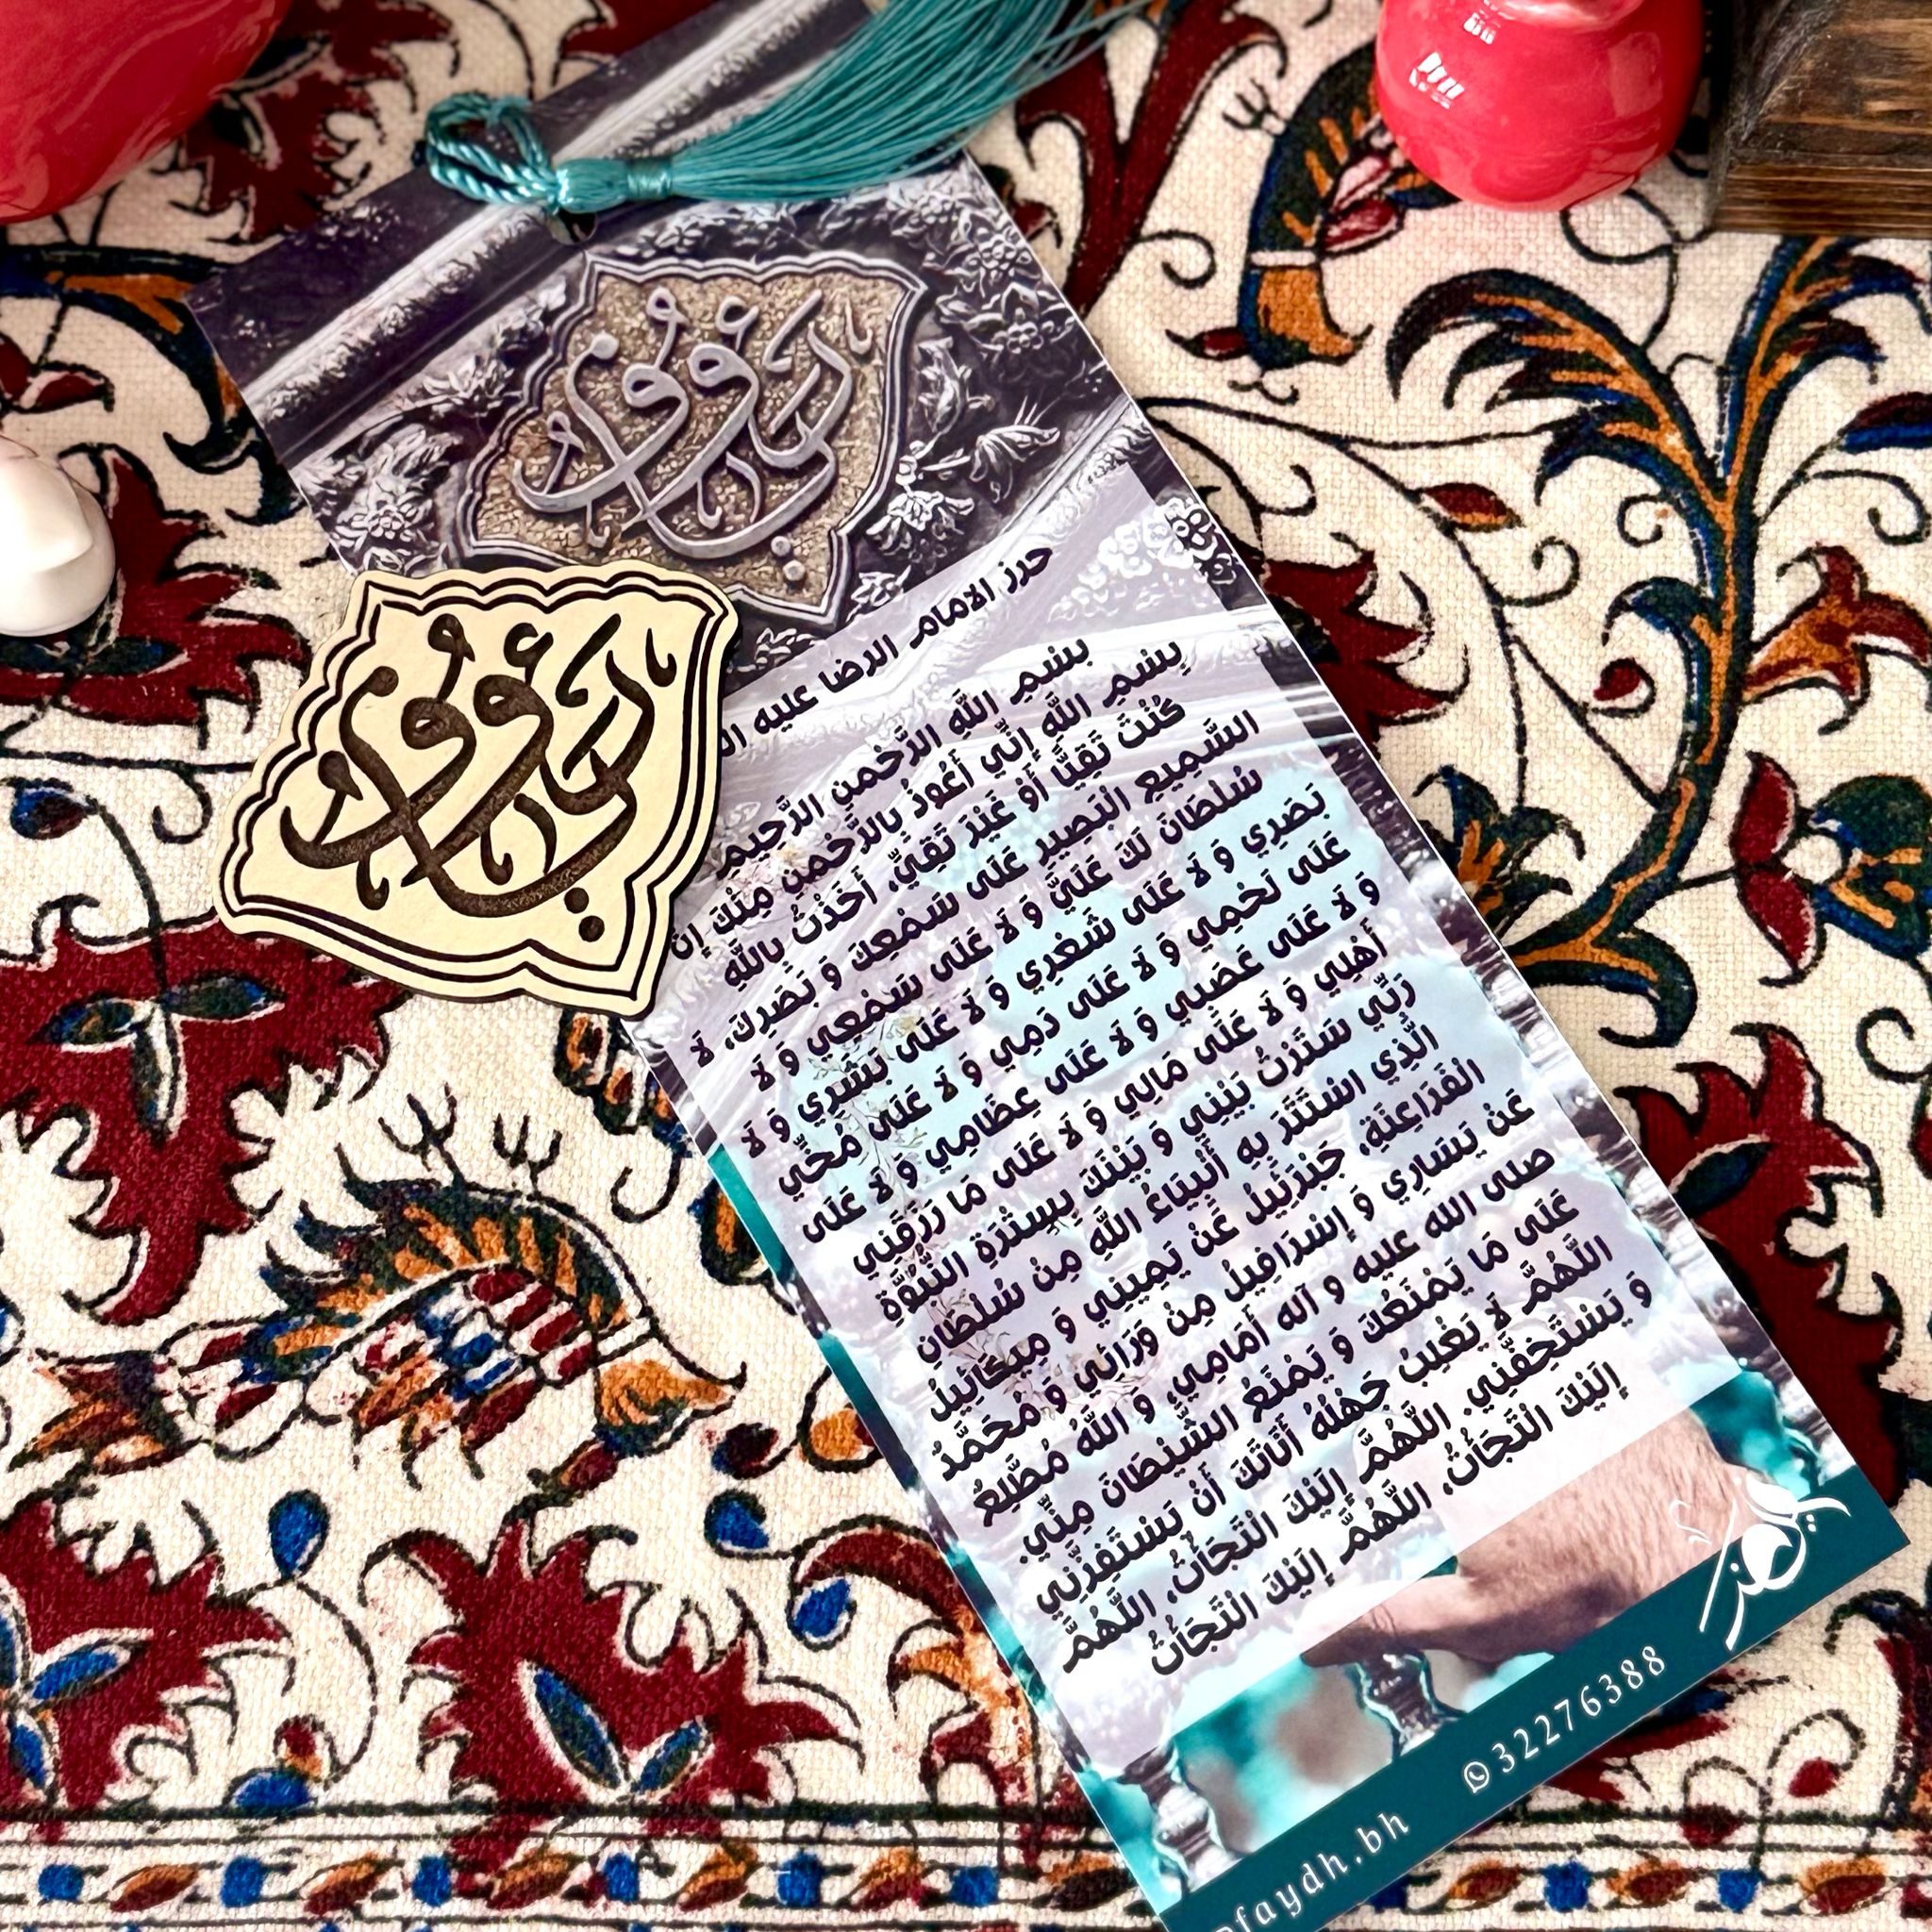 يا رؤوف
يا رؤوف
حرز الامام الرضا عليه
بِسْمِ اللَّهِ الرَّحْمنِ الرَّحِيمِ
بِسْمِ اللَّهِ إِنِّي أَعُوذُ بِالرَّحْمنِ مِنْكَ إِنْ
كُنْتَ تَقِيًّا أَوْ غَيْرَ تَقِيٍّ، أَخَذْتُ بِاللَّهِ
السَّمِيعِ الْبَصِيرِ عَلَى سَمْعِكَ وَ بَصَرِكَ، لَا
سُلْطَانَ لَكَ عَلَيَّ وَ لَا عَلَى سَمْعِي وَ لَا
بَصَرِي وَ لَا عَلَى شَعْرِي وَ لَا عَلَى بَشَرِي وَ لَا
عَلَى لَحْمِي وَ لَا عَلَى دَمِي وَ لَا عَلَى مُخِّي
وَ لَا عَلَى عَصَبِي وَ لَا عَلَى عِظَامِي وَ لَا عَلَى
أَهْلِي وَ لَا عَلَى مَالِي وَ لَا عَلَى مَا رَزَقَنِي
رَبِّي سَتَرْتُ بَيْنِي وَ بَيْنَكَ بِسِتْرَةِ النُّبُوَّةِ
الَّذِي اسْتَتَرَ بِهِ أَنْبِيَاءُ اللَّهِ مِنْ سُلْطَانِ
الْفَرَاعِنَةِ، جَبْرَئِيلُ عَنْ يَمِينِي وَ مِيكَائِيلُ
عَنْ يَسَارِي وَ إِسْرَافِيلُ مِنْ وَرَائِي وَ مُحَمَّدٌ
صلى الله عليه و آله أَمَامِي، وَ اللَّهُ مُطَّلِعٌ
عَلَى مَا يَمْنَعُكَ وَ يَمْنَعُ الشَّيْطَانَ مِنِّي.
اللَّهُمَّ لَا يَغْلِبُ جَهْلُهُ أَنَاتَكَ أَنْ يَسْتَفِزَّنِي
وَ يَسْتَخِفَّنِي. اللَّهُمَّ إِلَيْكَ الْتَجَأْتُ، اللَّهُمَّ
إِلَيْكَ الْتَجَأْتُ، اللَّهُمَّ إِلَيْكَ الْتَجَأْتُ
faydh.bh 32276388